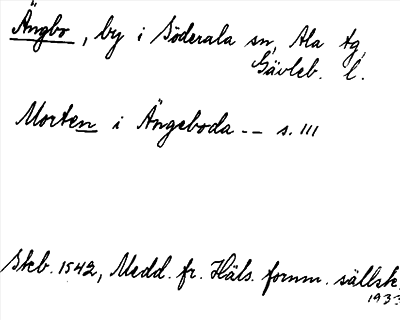 Ängbo, by i Söderala sn, Ala tg,
Gävleb. l.
Morten i Ängeboda -- s. 111
Skb. 1542, Medd. fr. Häls. fornm. sällsk.
1933